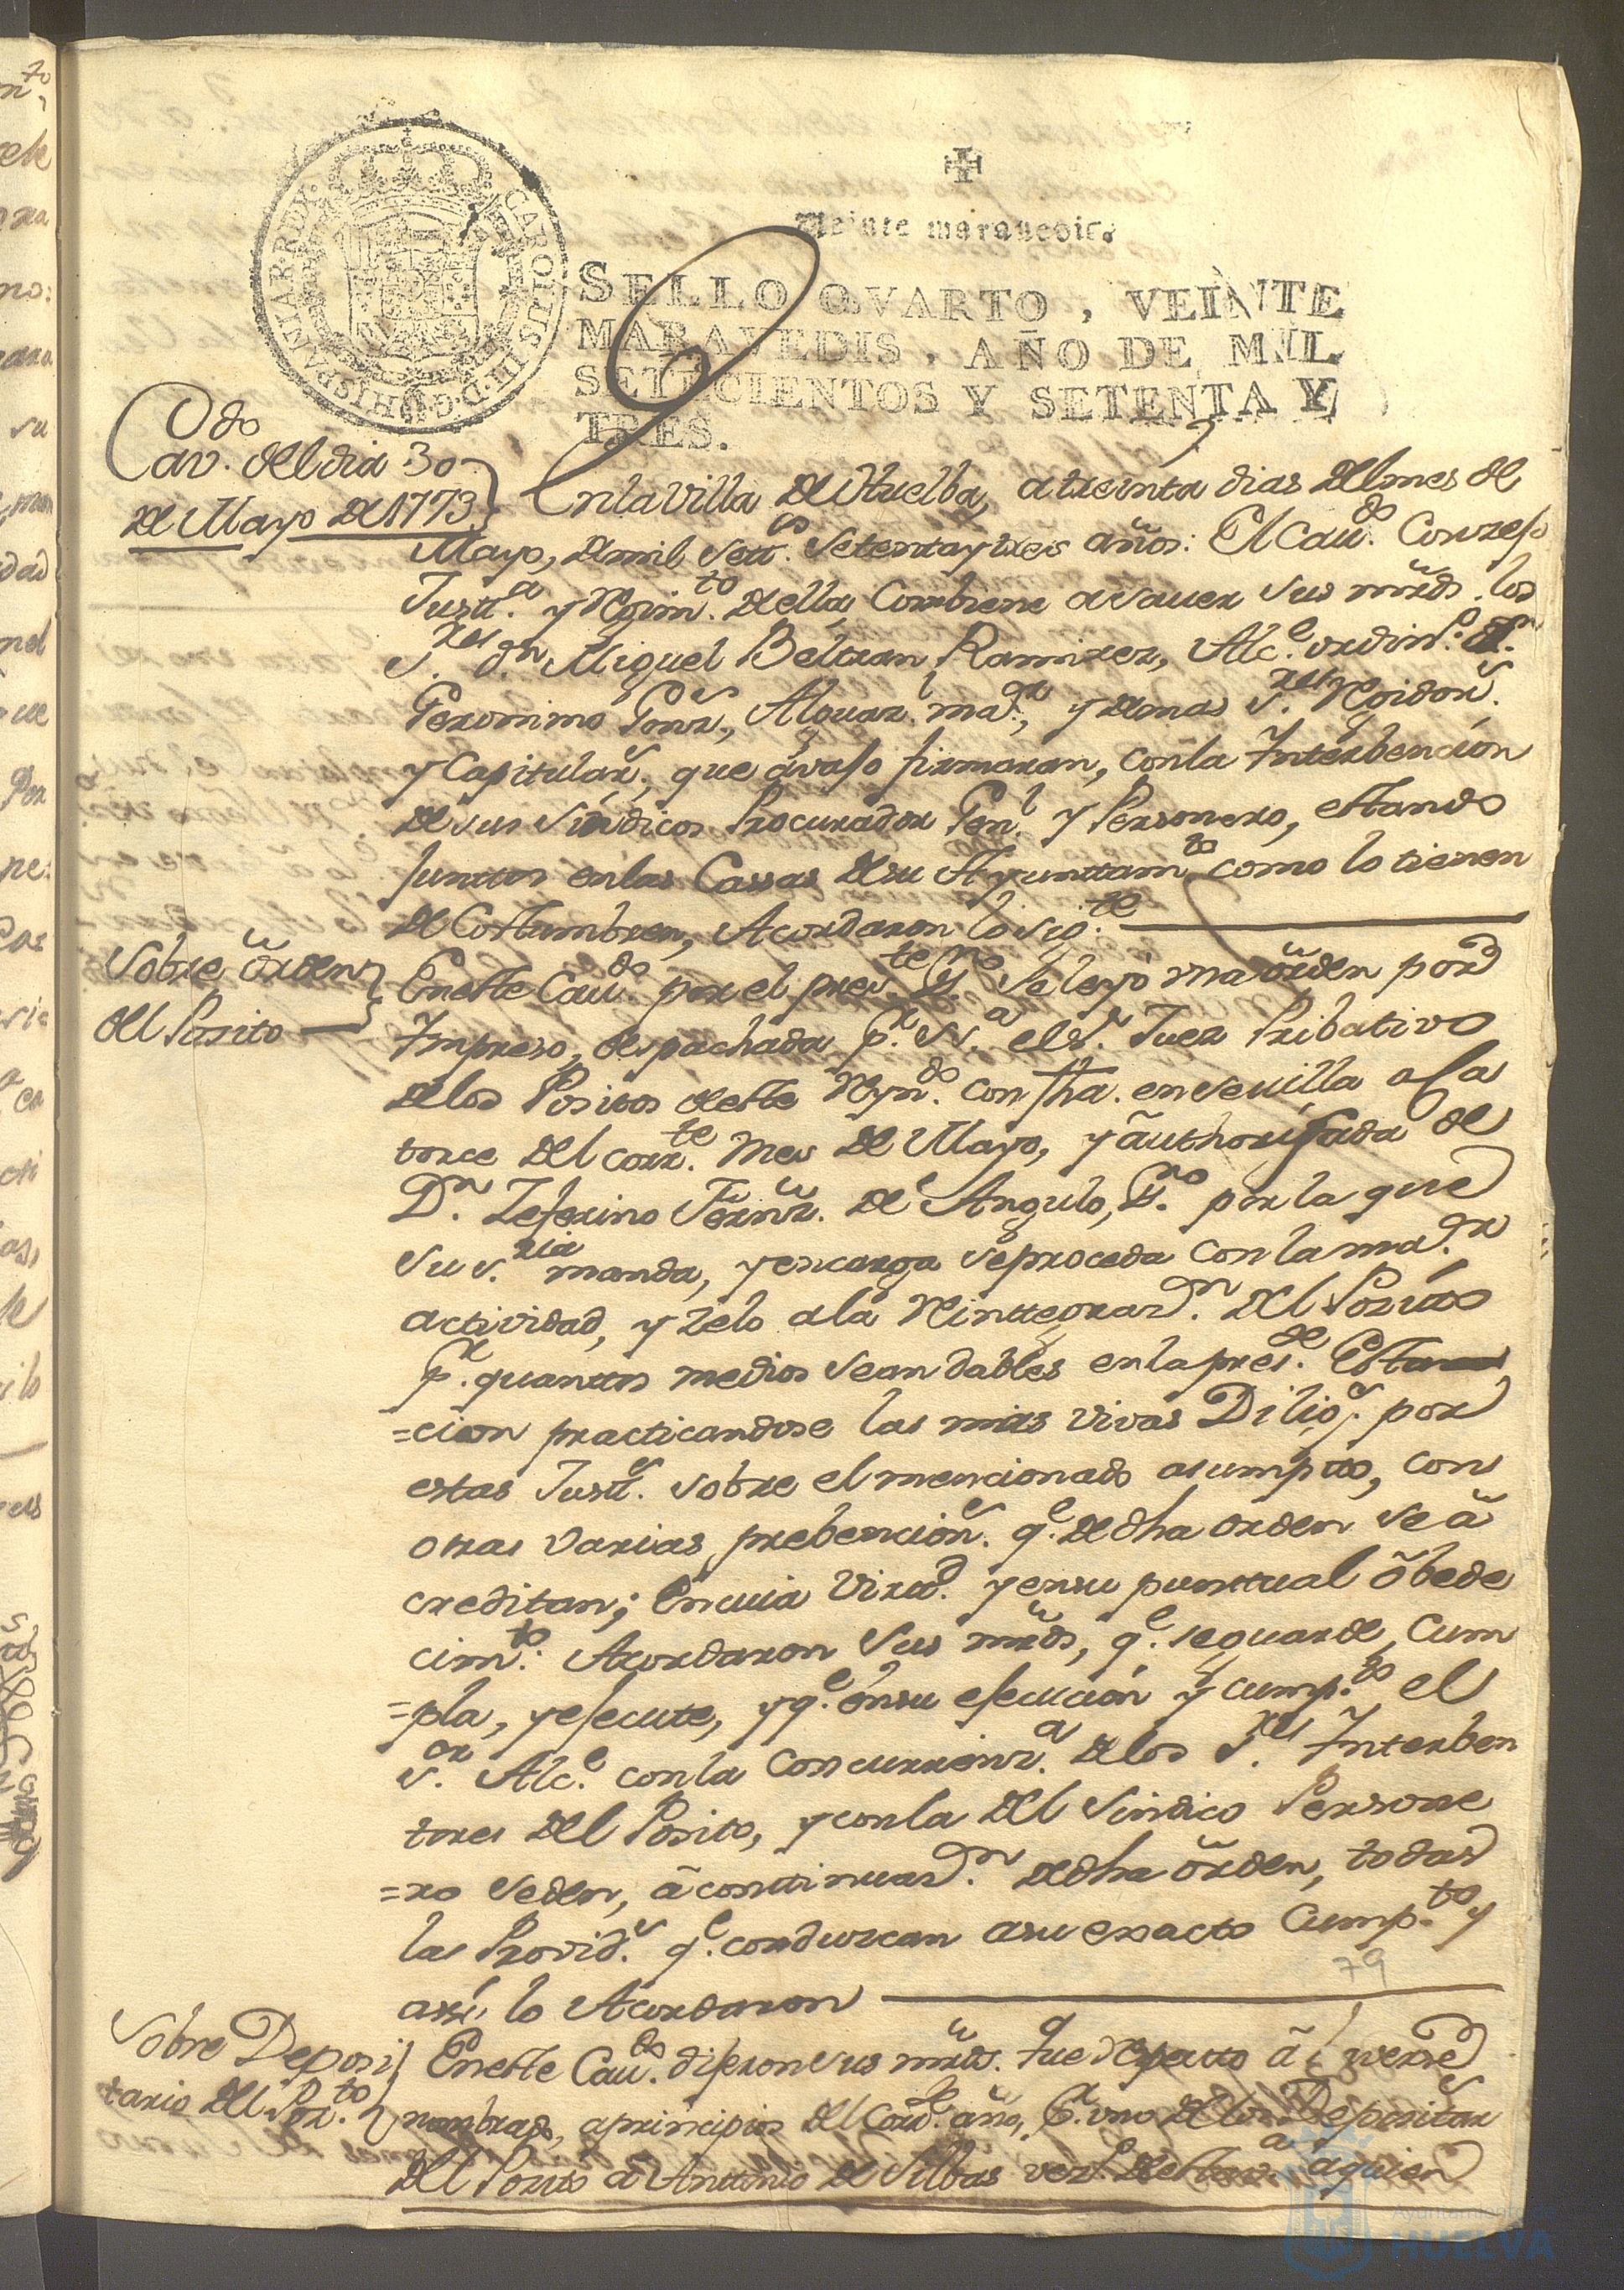 Veinte maravedis.
SELLO QVARTO, VEINTE
MARAVEDIS, AÑO DE MIL
SETECIENTOS Y SETENTA Y
TRES.
CAROLUS III D G HISPANIAR REX
Cavdo. del dia 30
de Mayo de 1773
En la Villa de Huelba, a treinta dias del mes de
Mayo, de mil settos. setenta y tres años: El Caudo. Consejo
Justta. y Regimto. de ella, combiene a saver sus mrds. los
Sres. Dn. Miguel Beltran Ramirez, Alce. ordino. Dn.
Geronimo Gonz., Alguazl. mar., y demas Sres. Rexidors.
y Capitulars., que avajo firmaran, con la Interbencion
de sus Sindicos Procurador Genl. y Personero, estando
juntos en las Cassas de su Ayunttamto. como lo tienen
de Costtumbren, Acordaron lo sigte.
Sobre orden
del Posito
En este Caudo. por el preste. Esno. se leyó una orden por
Impreso, despachada pr. Sa. el Sr. Juez Pribativo
de los Positos de este Reyndo. con fha. en Sevilla a ca
torce del corrte. mes de Mayo, y authorisada de
Dn. Zeferino Fernz. de Angulo, Esno. por la que
su Sria. manda, y encarga se proceda con la mar.
actividad, y zelo a la Reinttegrazn. del Posito
pr. quanttos medios sean dables en la prese. Esta
=cion practicandose las mas vivas Diligs. por
estas Justs. sobre el mencionado asumpto, con
otras varias prebencions. qe. de dha orden se a
creditan; En cuia Virtd. y en su puntual obede
cimto. Acordaron sus mrds, qe. se guarde, cum
=pla, y ejecute, y qe. en su ejecución y cumpto. el
Sor. Alce. con la concurrenza. de los Sres. Interben
tores del Posito, y con la del Sindico Persone
=ro se den, a conttinuazn. de dha orden, todas
las Provids. qe. conduzcan a su exacto Cumpto. y
assi lo Acordaron
79
Sobre Deposi
tario del Posto.
En este Caudo. dijeron sus mrds. que respectto a averse
nombrado, a principios del corrte. año, pr. uno de los Depositars.
del Posito a Anttonio de Silbas vezo. de esta Va. a quien
Ayuntamiento de
HUELVA